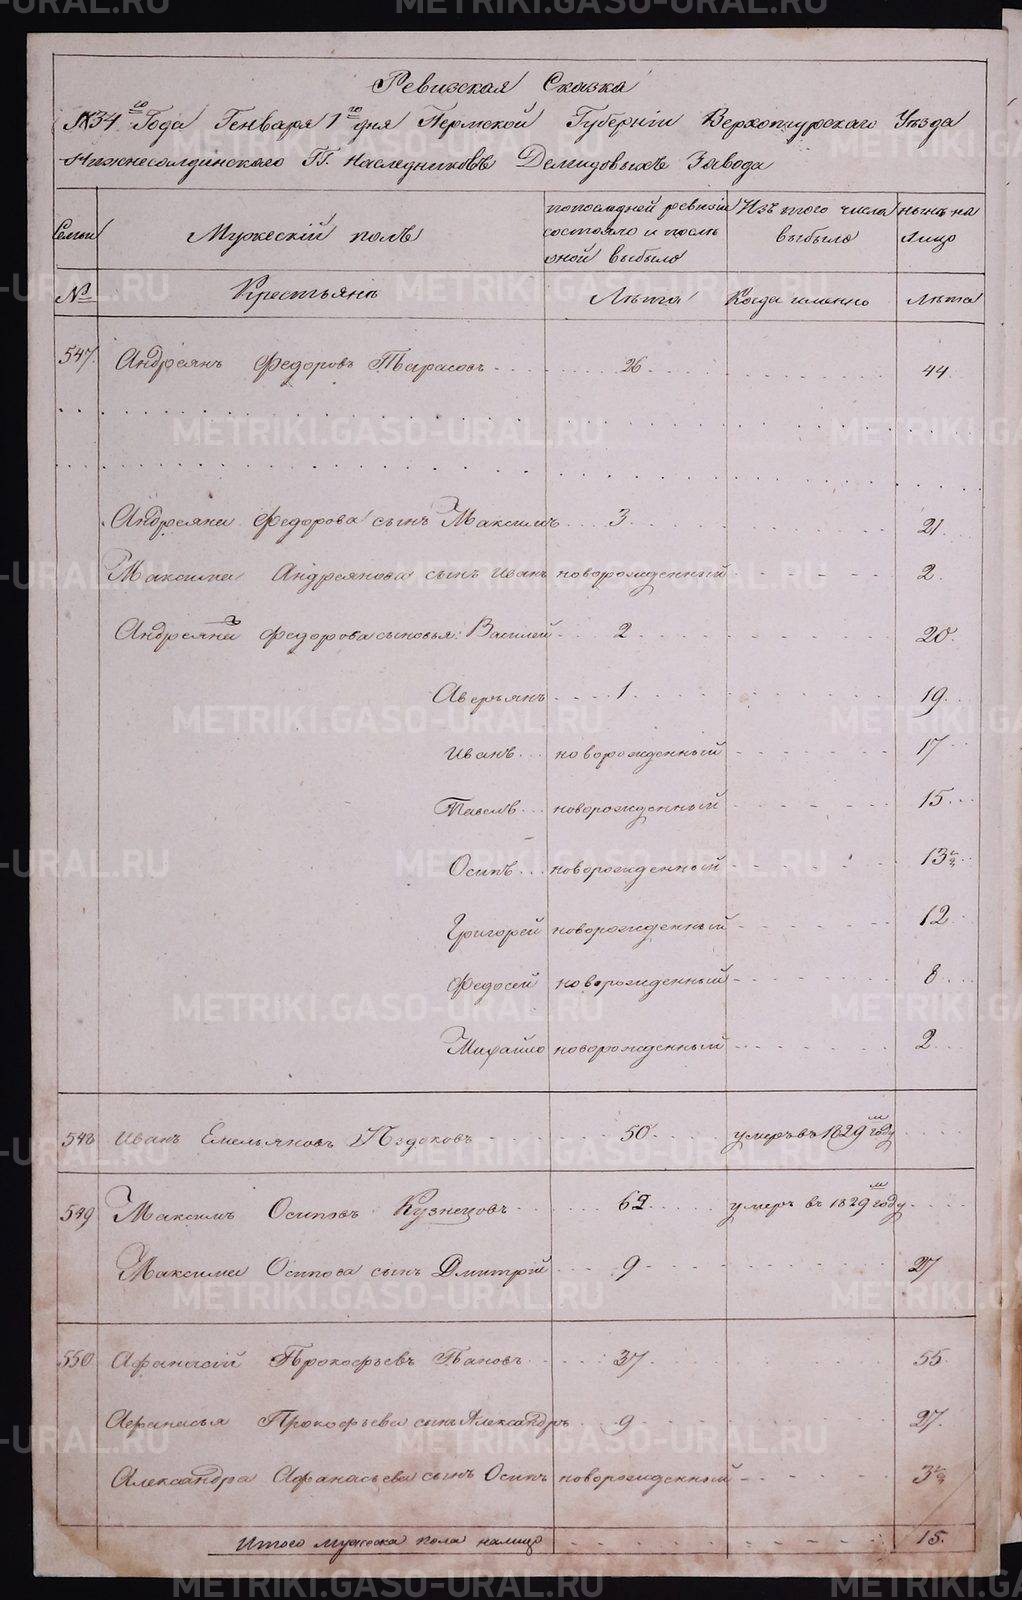 Ревизская Сказка
1834го Года Генваря 1го дня Пермской Губернiи Верхотурскаго Уѣзда
Нижнесалдинскаго Гг. Наследниковъ Демидовыхъ Завода
Семьи Мужескiй полъ по последней ревизiи состояло и после оной выбыло Изъ того числа выбыло ныне на лицо
№ Крестьянъ Лѣта Когда именно Лѣта
547. Андреянъ Федоровъ Тарасовъ 26 44
Андреяна Федорова сынъ Максимъ 3 21
Максима Андреянова сынъ Иванъ новорожденный 2
Андреяна Федорова сыновья: Василей 2 20
Аверьянъ 1 19
Иванъ новорожденный 17
Павелъ новорожденный 15
Осипъ новорожденный 13½
Григорей новорожденный 12
Федосей новорожденный 8
Михайло новорожденный 2
548 Иванъ Емельяновъ 50 умеръ въ 1829м году
549 Максимъ Осиповъ Кузнецовъ 62 умеръ въ 1829м году
Максима Осипова сынъ Дмитрiй 9 27
550 Афанасiй Прокофьевъ Пановъ 37 55
Афанасья Прокофьева сынъ Александръ 9 27
Александра Афанасьева сынъ Осипъ новорожденный
Итого мужеска пола налицо 15
METRIKI.GASO-URAL.RU